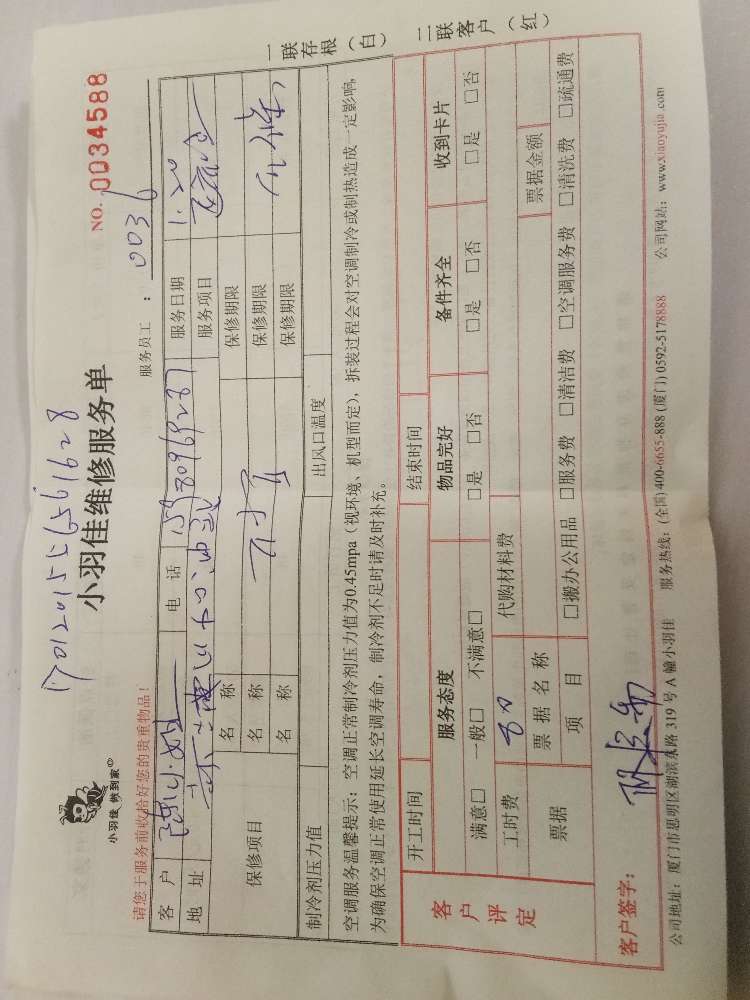 1701201556561628
小羽佳维修服务单
NO. 0034588
小羽佳 做到家
服务员工： 0036
请您于服务前收拾好您的贵重物品！
客户 电话 服务日期 1.20
地址 服务项目
保修项目 名称 保修期限
名称 保修期限
名称 保修期限
制冷剂压力值 出风口温度
空调服务温馨提示：空调正常制冷剂压力值为0.45mpa（视环境、机型而定），拆装过程会对空调制冷或制热造成一定影响，
为确保空调正常使用延长空调寿命，制冷剂不足时请及时补充。
一联存根（白） 二联客户（红）
客户评定
开工时间 结束时间
服务态度 物品完好 备件齐全 收到卡片
满意□ 一般□ 不满意□ □是 □否 □是 □否 □是 □否
工时费 代购材料费
票据 票据名称 票据金额
项目 □搬办公用品 □服务费 □清洁费 □空调服务费 □清洗费 □疏通费
客户签字：
公司地址：厦门市思明区湖滨东路 319 号 A 幢小羽佳 服务热线：(全国) 400-6655-888 (厦门) 0592-5178888 公司网站：www.xiaoyujia.com